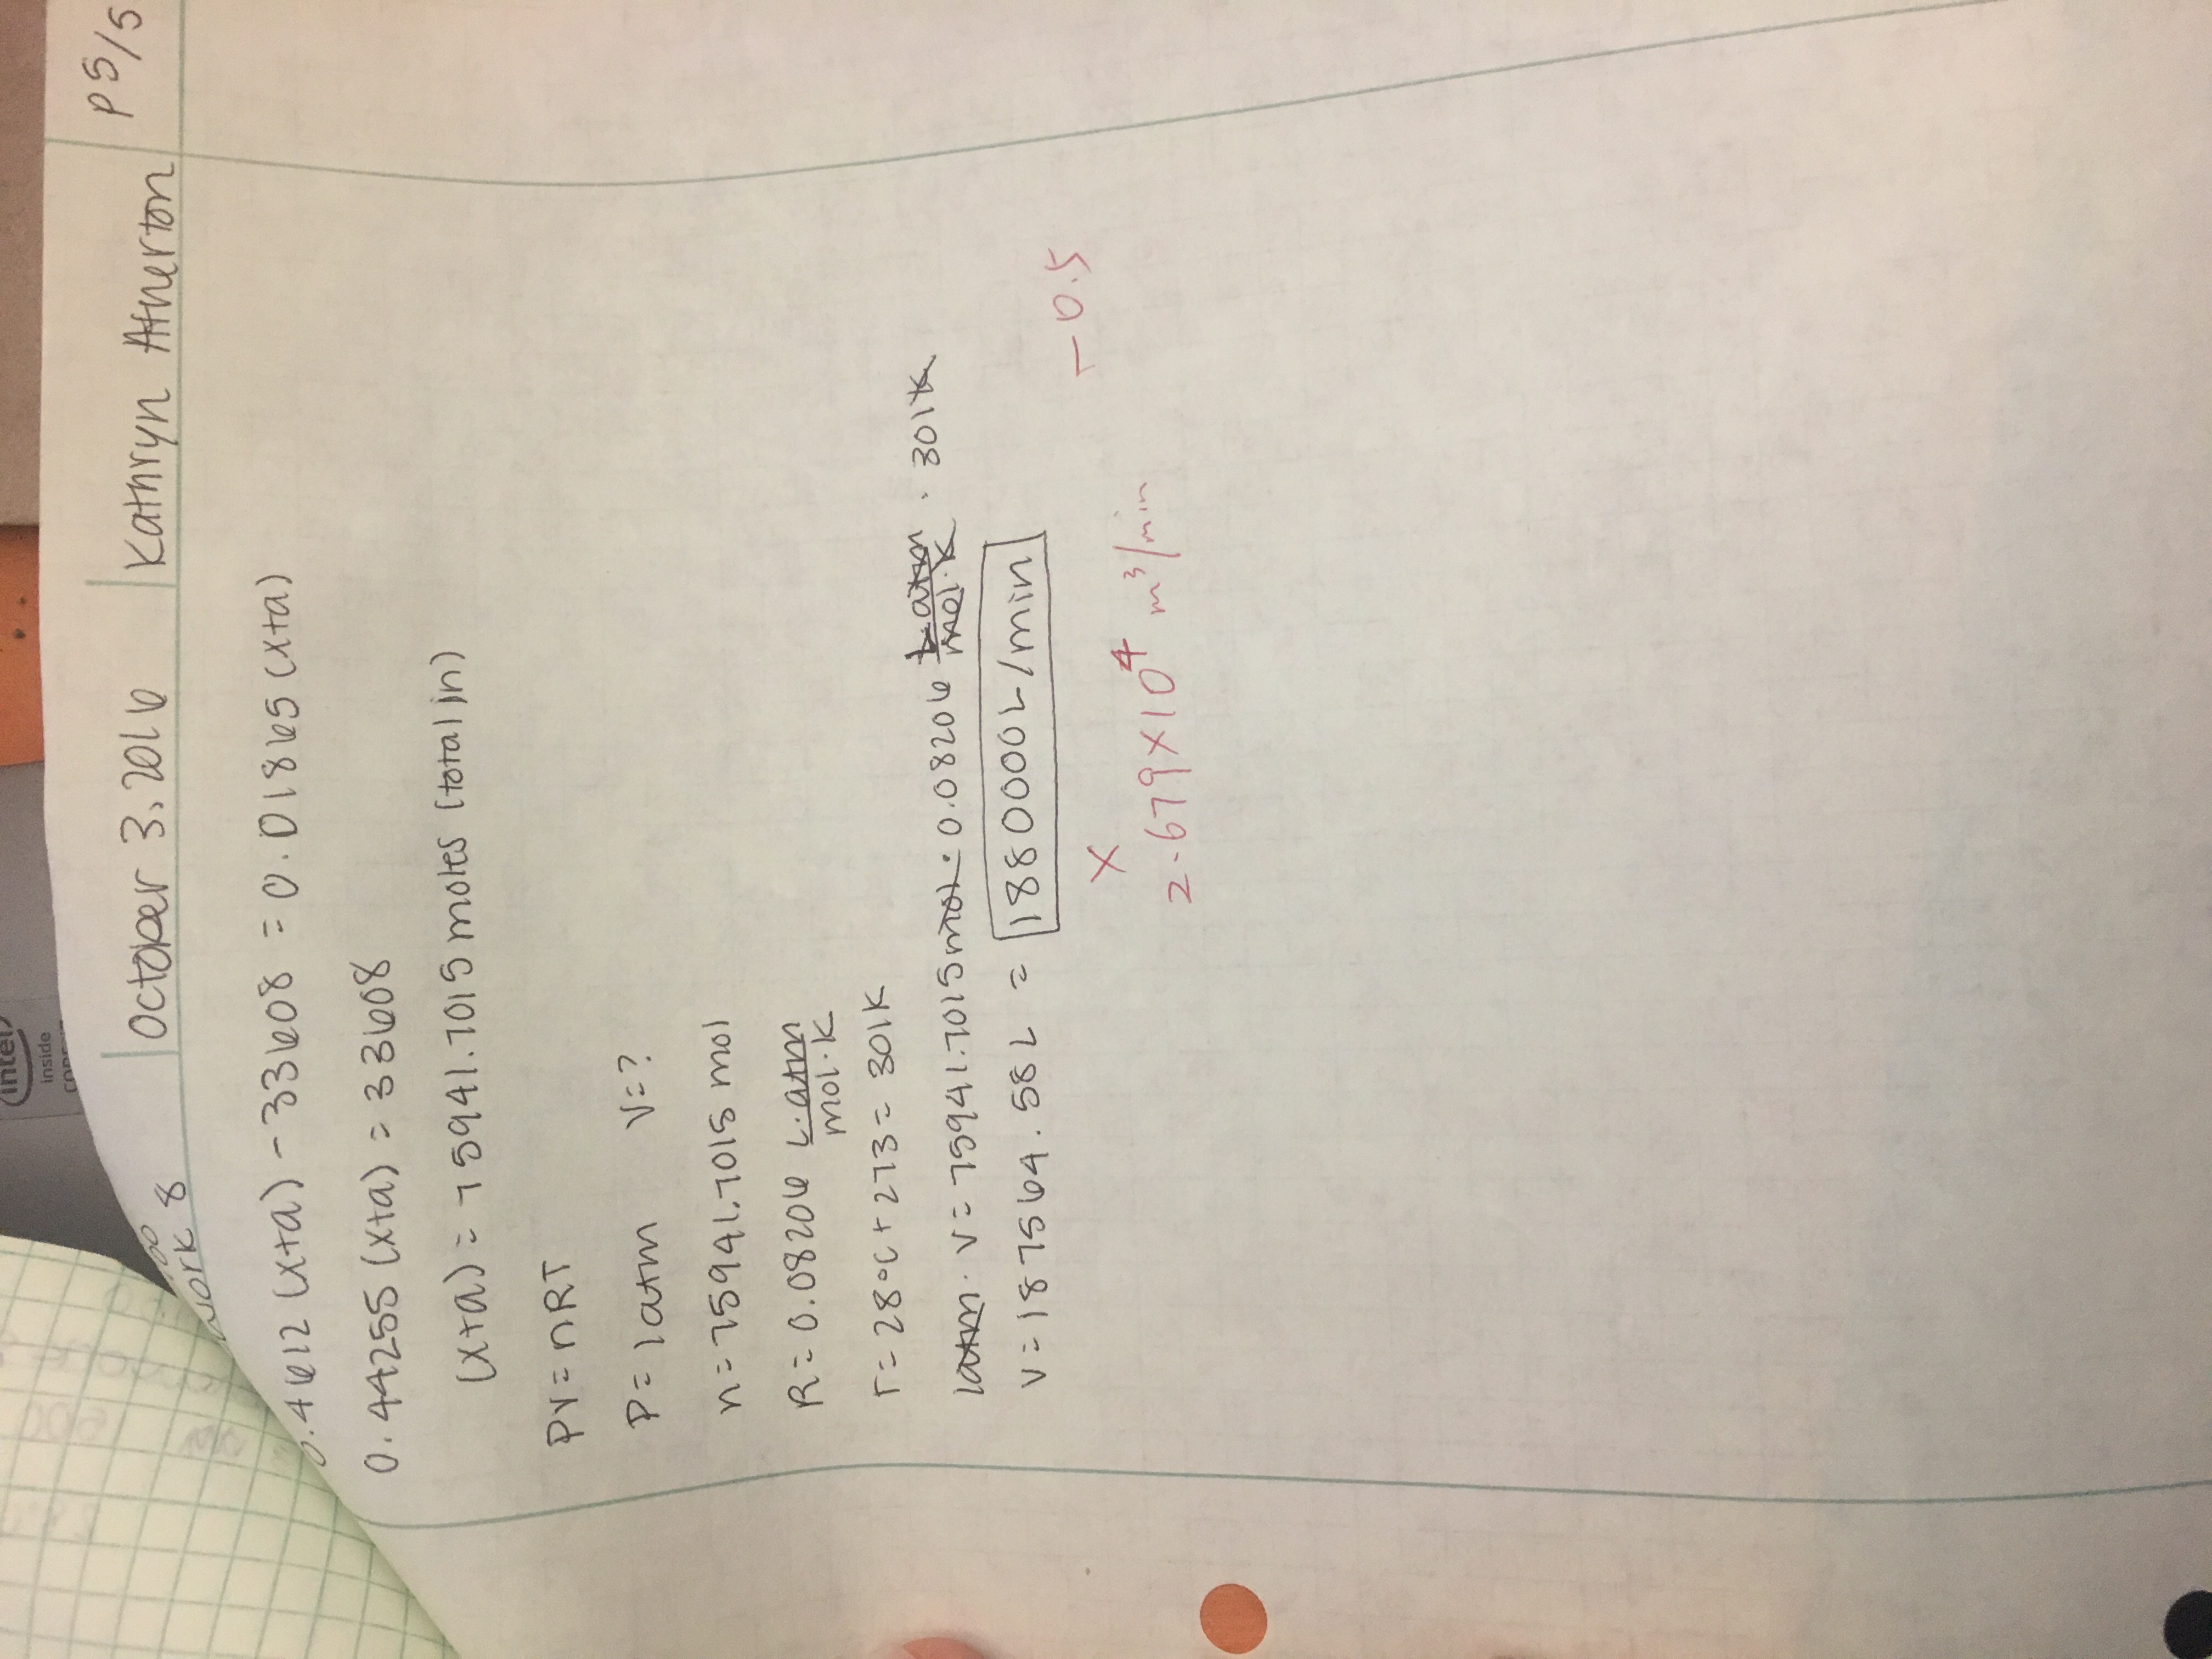 intel
inside
October 3, 2016
Kathryn Atherton
P 5/5
work 8
0.4612 (x+a) - 33608 = 0.01865 (x+a)
0.44255 (x+a) = 33608
(x+a) = 75941.7015 moles (total in)
PV = nRT
P = 1 atm V = ?
n = 75941.7015 mol
R = 0.08206 L·atm
mol·K
T = 28°C + 273 = 301K
1atm · V = 75941.7015 mol · 0.08206 L·atm · 301K
mol·K
V = 187564.58 L = 1880000 L/min
- 0.5
X
2.679×10⁴ m³/min